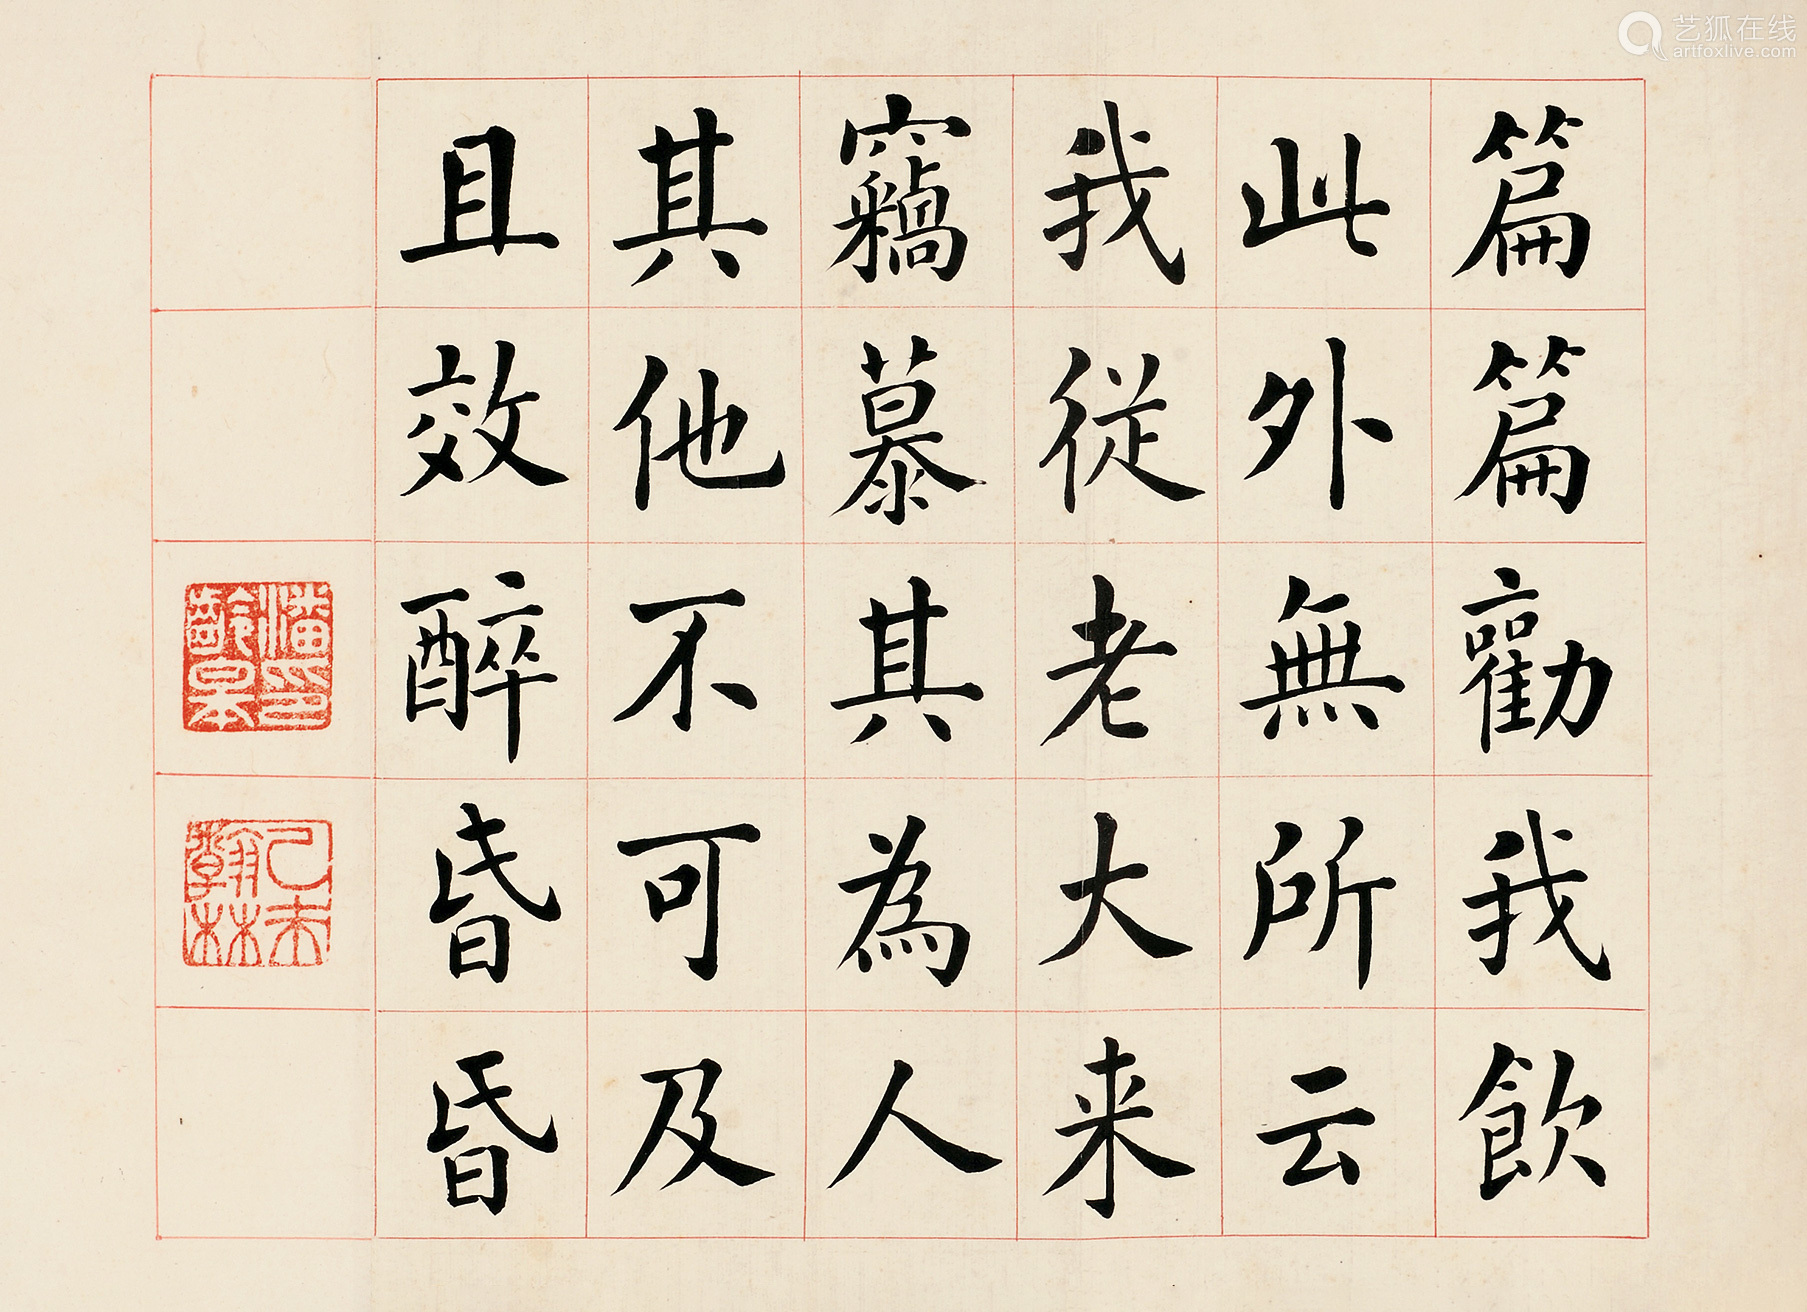 篇篇勸我飲
此外無所云
我從老大来
竊慕其為人
其他不可及
且效醉昏昏
潘齡皋印
乙未翰林
艺狐在线
artfoxlive.com